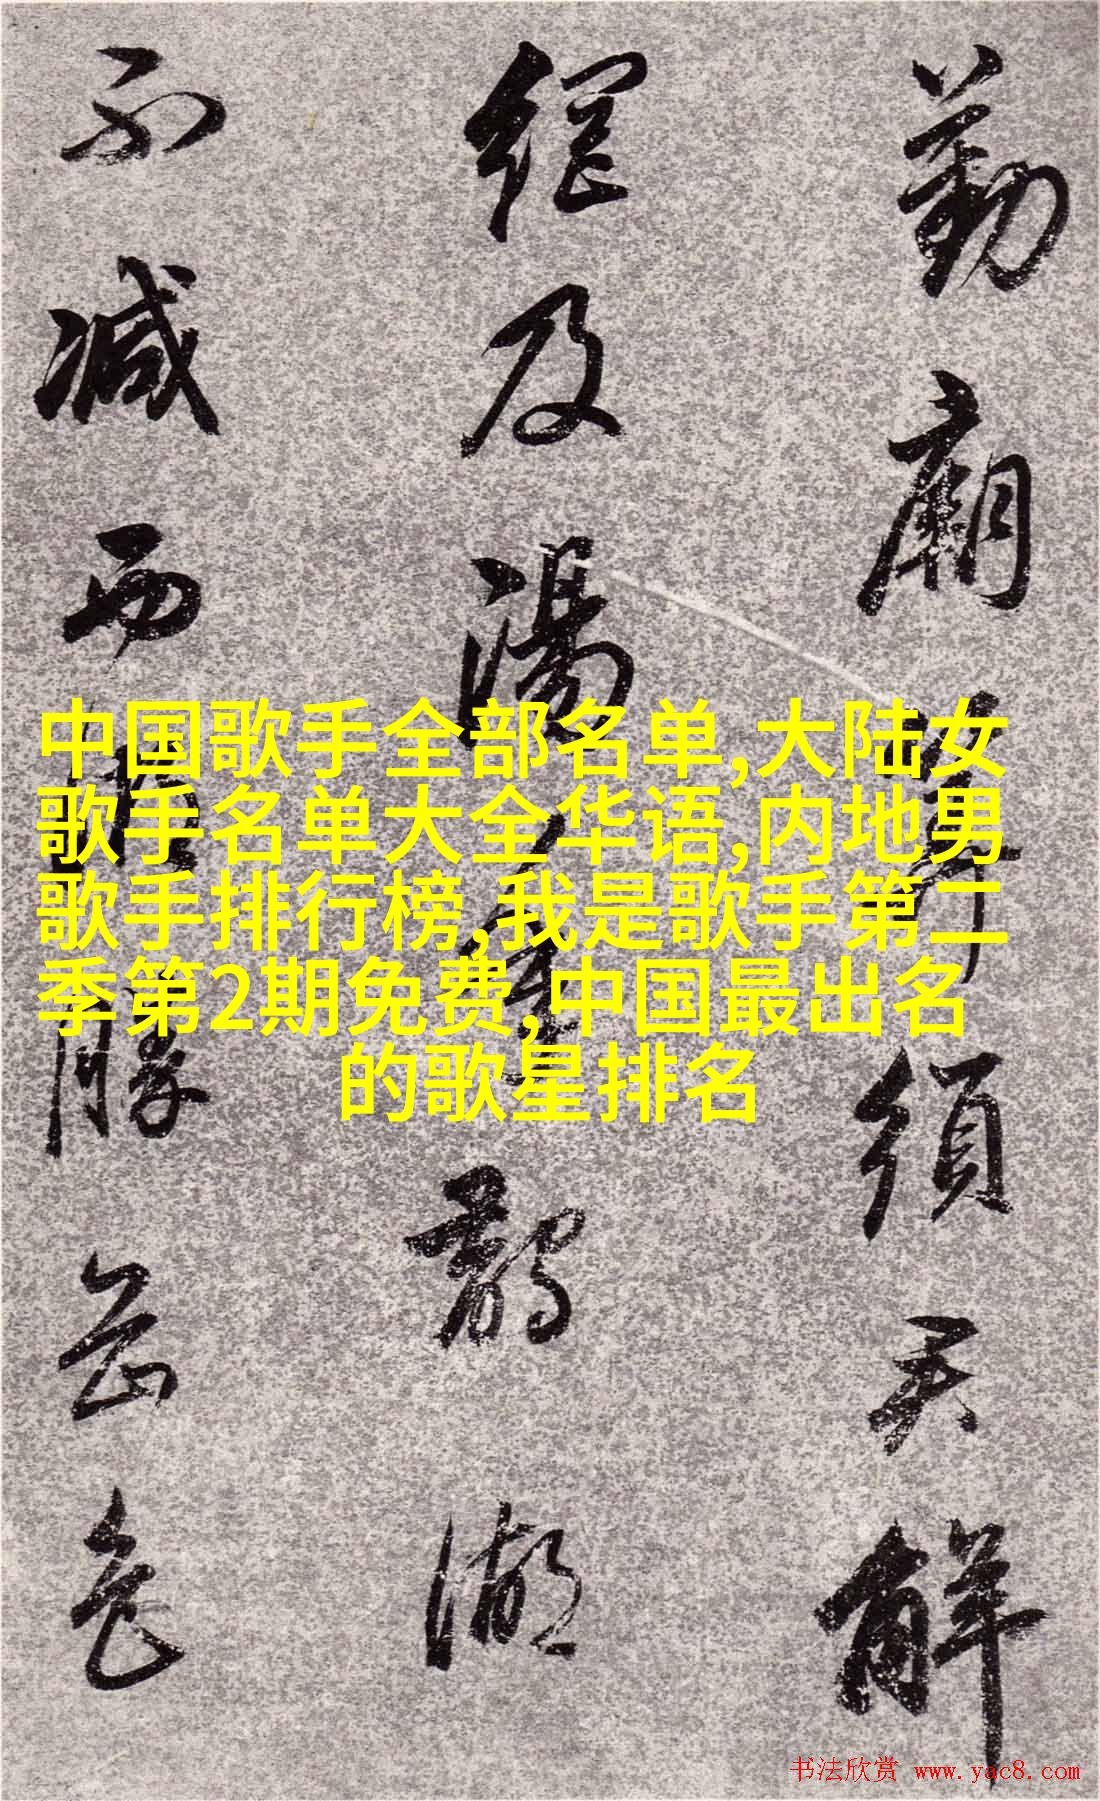 勤廟算須君解
網及湯
鵲湖
不減西湖勝無邑
中国歌手全部名单,大陆女
歌手名单大全华语,内地男
歌手排行榜,我是歌手第二
季第2期免费,中国最出名
的歌星排名
书法欣赏 www.yac8.com